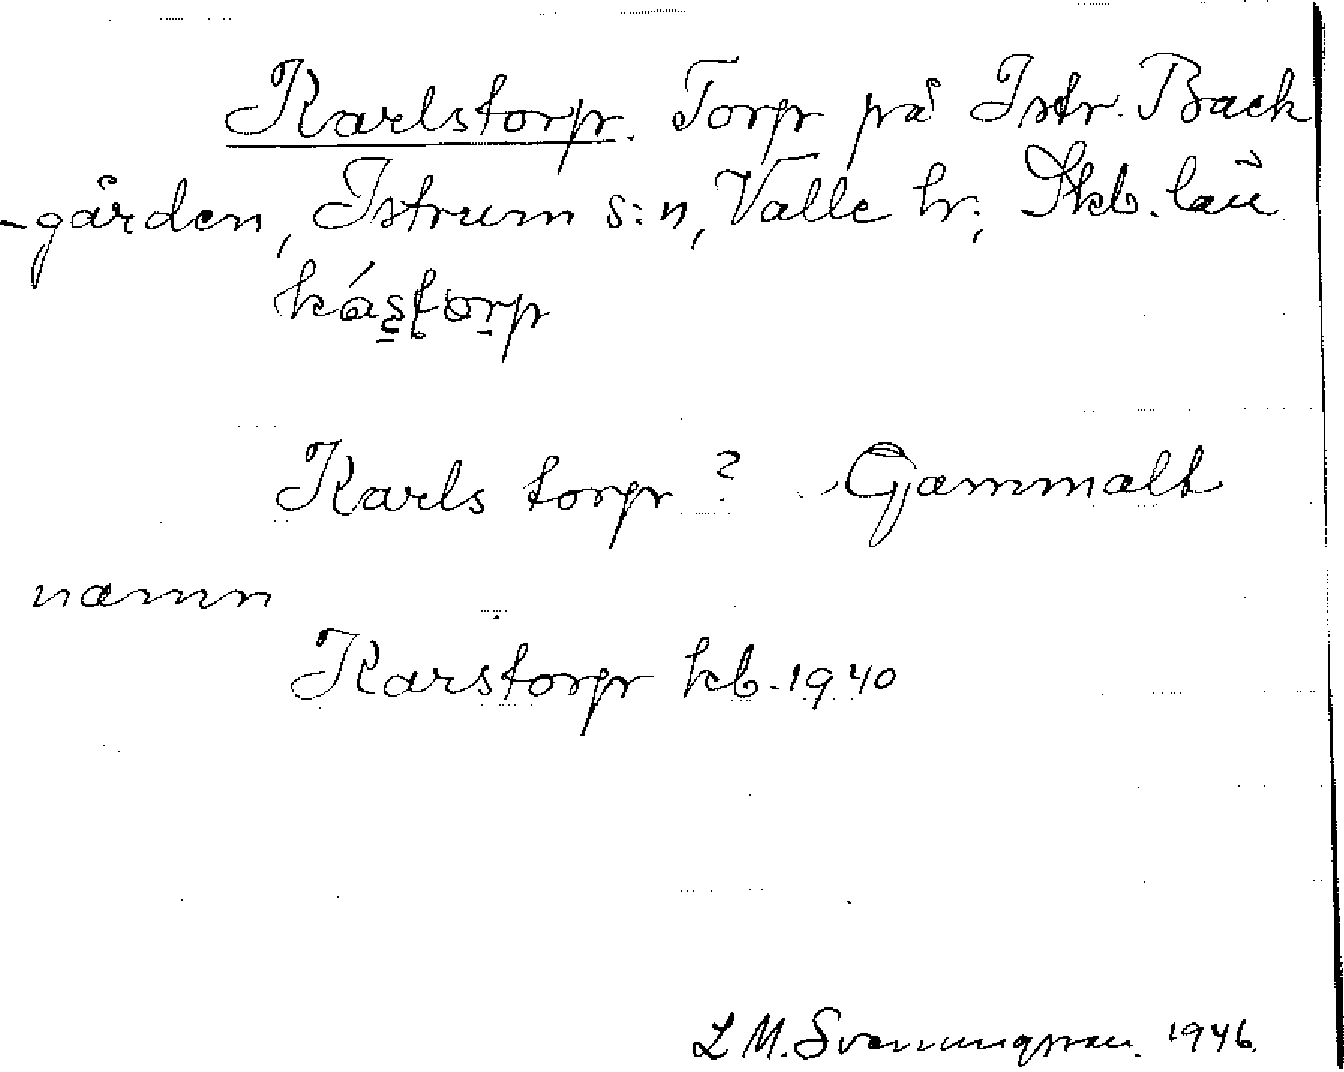 Karlstorp. Torp på Istr. Back
-gården, Istrum s:n, Valle hr; Skb. län
kástorp
Karls torp ? Gammalt
namn
Karstorp kb. 1940
L M. Svenungsson. 1946.